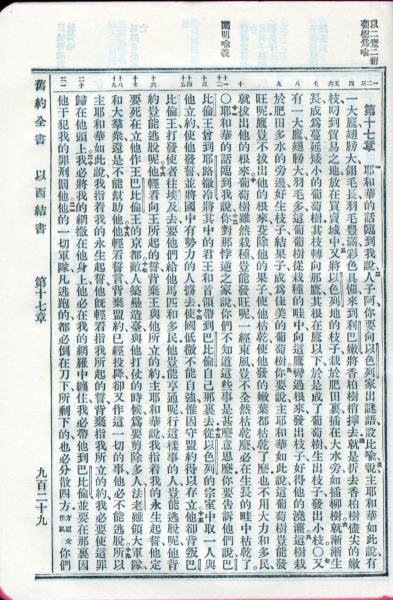 以二鷹二葡
萄樹為喻
闡明喻義
第十七章 耶和華的話臨到我說人子阿你要向以色列家出謎語設比喻說主耶和華如此說有
一大鷹翅膀大翎毛長羽毛豐滿彩色俱備來到利巴嫩將香柏樹梢擰去就是折去香柏樹儘尖的嫩
枝叼到貿易之地放在買賣城中又將以色列地的枝子栽於肥田裏插在大水旁如插柳樹就漸漸生
長成為蔓延矮小的葡萄樹其枝轉向那鷹其根在鷹以下於是成了葡萄樹生出枝子發出小枝〇又
有一大鷹翅膀大羽毛多這葡萄樹從栽種的畦中向這鷹彎過根來發出枝子好得他的澆灌這樹栽
於肥田多水的旁邊好生枝子結果子成為佳美的葡萄樹你要說主耶和華如此說這葡萄樹豈能發
旺呢鷹豈不拔出他的根來芟除他的果子使他枯乾使他發的嫩葉都枯乾了麼也不用大力和多民
就拔出他的根來葡萄樹雖然栽種豈能發旺呢一經東風豈不全然枯乾麼必在生長的畦中枯乾了
〇耶和華的話臨到我說你對那悖逆之家說你們不知道這些事是甚麼意思麼你要告訴他們說巴
比倫王曾到耶路撒冷將其中的君王和首領帶到巴比倫自己那裏去從以色列的宗室中取一人與
他立約使他發誓並將國中有勢力的人擄去使國低微不能自強惟因守盟約得以存立他卻背叛巴
比倫王打發使者往埃及去要他們給他馬匹和多民他豈能亨通呢行這樣事的人豈能逃脫呢他背
約豈能逃脫呢他輕看向王所起的誓背棄王與他所立的約主耶和華說我指着我的永生起誓他定
要死在立他作王巴比倫王的京都敵人築壘造臺與他打仗的時候為要剪除多人法老雖領大軍隊
和大羣衆還是不能幫助他他輕看誓言背棄盟約已經投降卻又作這一切的事他必不能逃脫所以
主耶和華如此說我指着我的永生起誓他既輕看指我所起的誓背棄指我所立的約我必要使這罪
歸在他頭上我必將我的網撒在他身上他必在我的網羅中纏住我必帶他到巴比倫並要在那裏因
他干犯我的罪刑罰他他的一切軍隊凡逃跑的都必倒在刀下所剩下的也必分散四方 方原文作風 你們
舊約全書 以西結書 第十七章 九百二十九